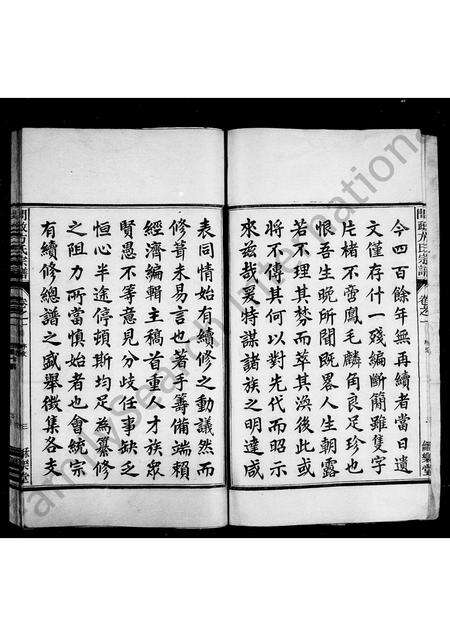 今四百餘年無再續者當日遺
文僅存什一殘編斷簡雖隻字
片楮不啻鳳毛麟角良足珍也
恨吾生晚所聞既累人生朝露
若不理其棼而萃其渙後此或
將不傳其何以對先代而昭示
來茲哉爰特謀諸族之明達咸
表同情始有續修之動議然而
修葺未易言也著手籌備端賴
經濟編輯主稿首重人才族眾
賢愚不等意見分歧任事缺乏
恒心半途停頓斯均足為纂修
之阻力所當慎始者也會統宗
有續修總譜之盛舉徵集各支
方氏宗譜
卷之一
樂堂
FamilySearch International